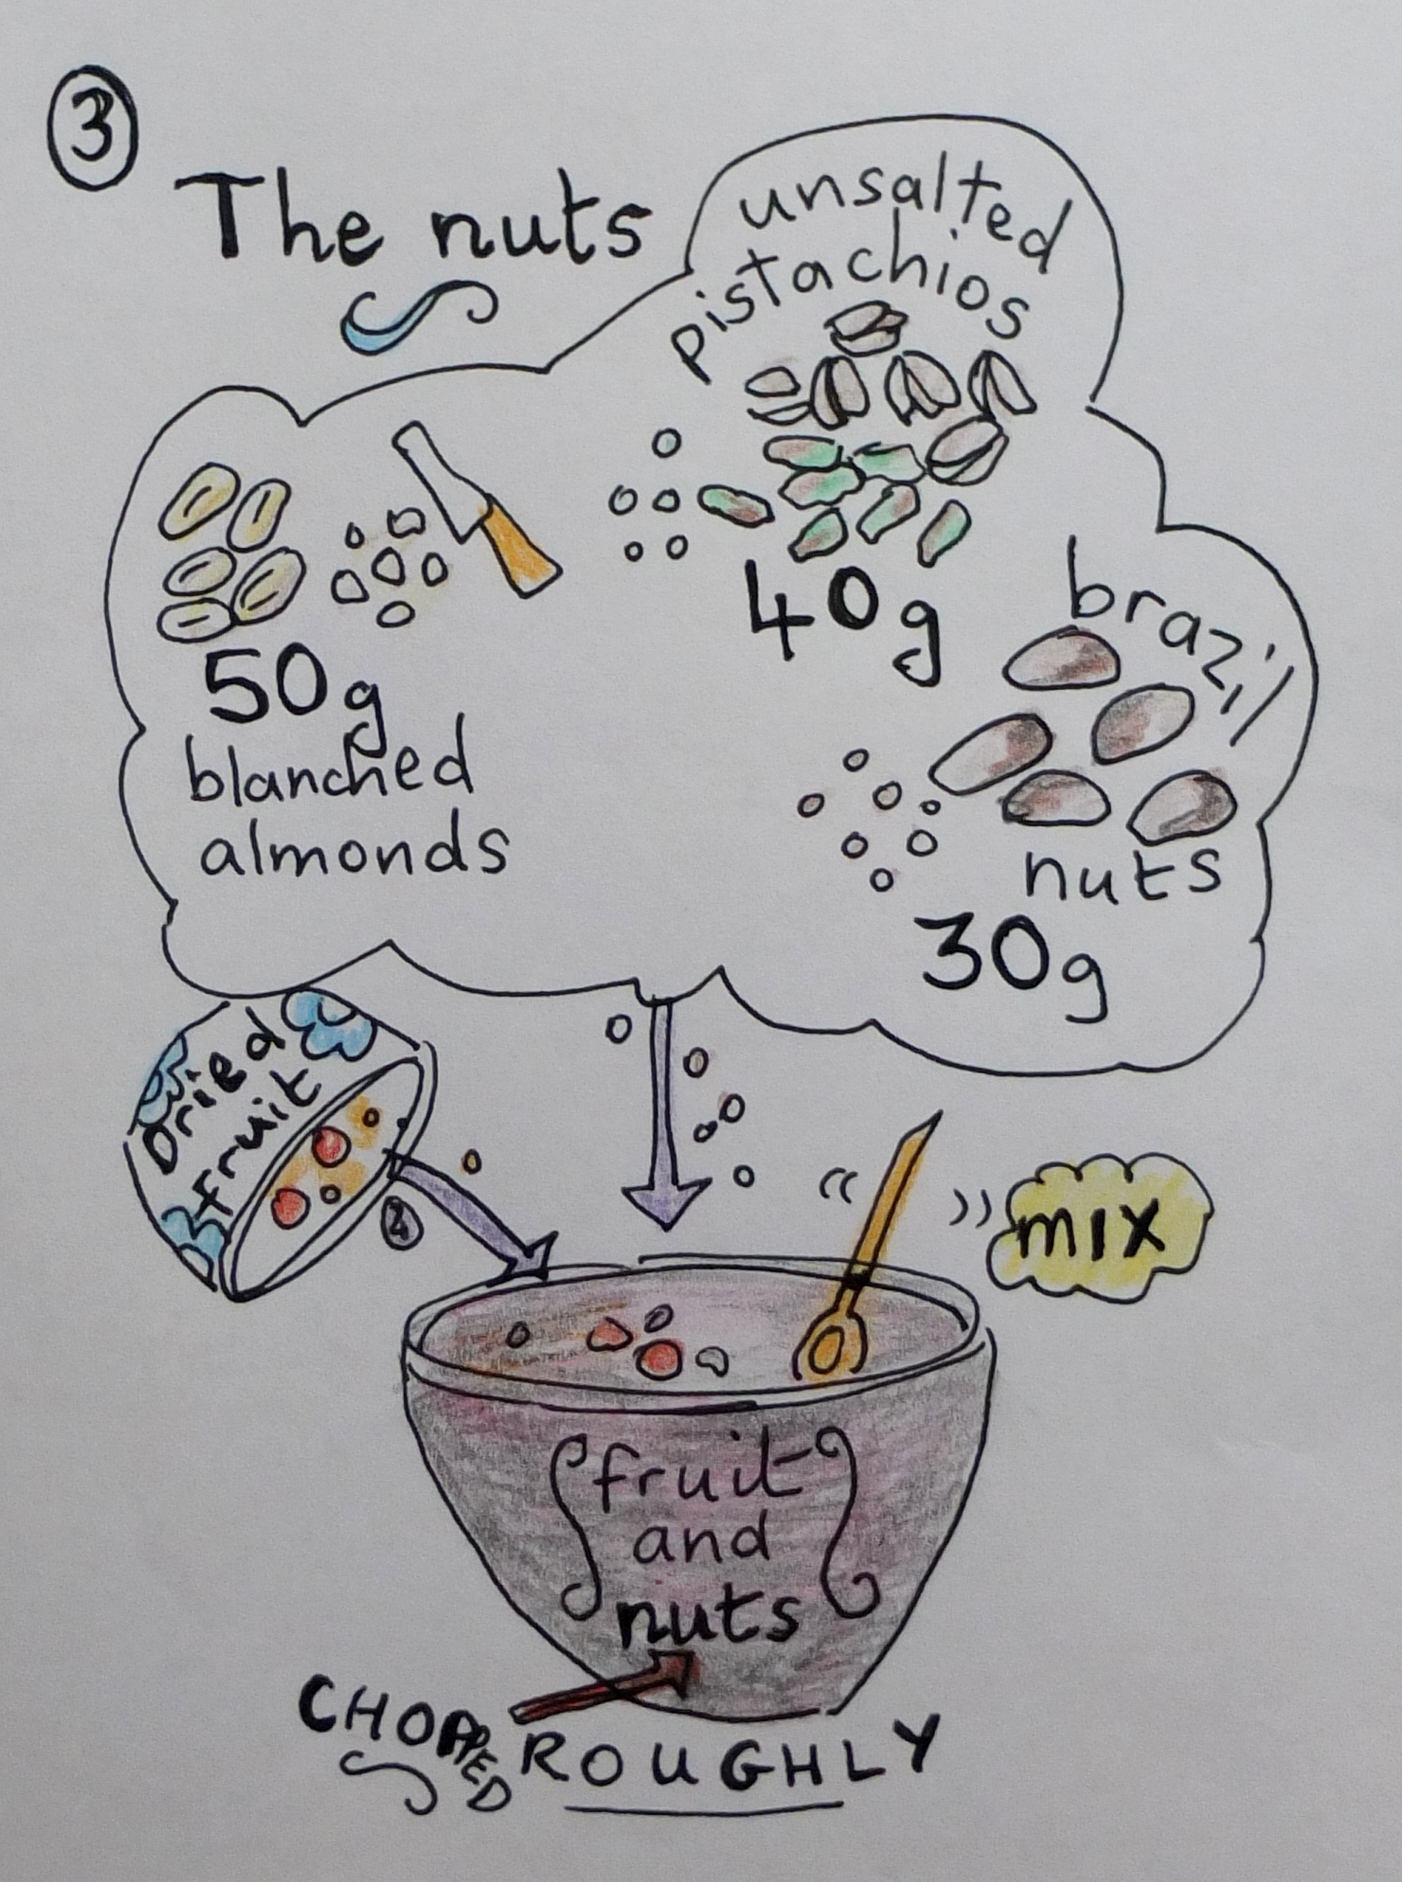 3
The nuts
unsalted
pistachios
40g
brazil
nuts
30g
50g
blanched
almonds
Dried
fruit
2
mix
fruit
and
nuts
CHOPPED
ROUGHLY